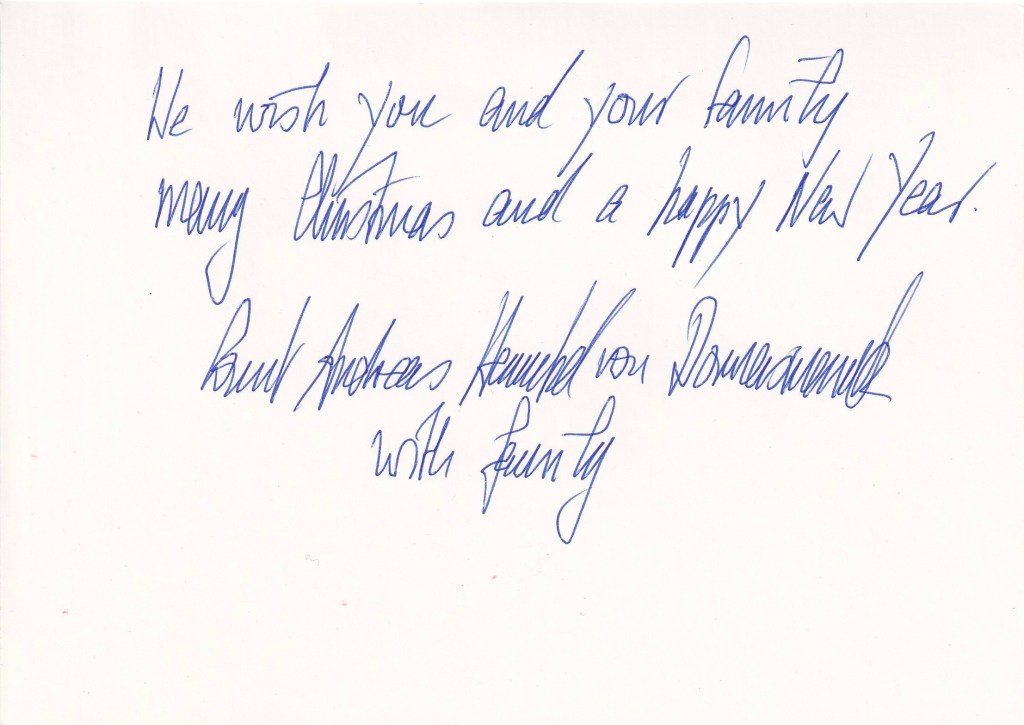 We wish you and your family
merry Christmas and a happy New Year.
Count Andreas Henckel von Donnersmarck
with family